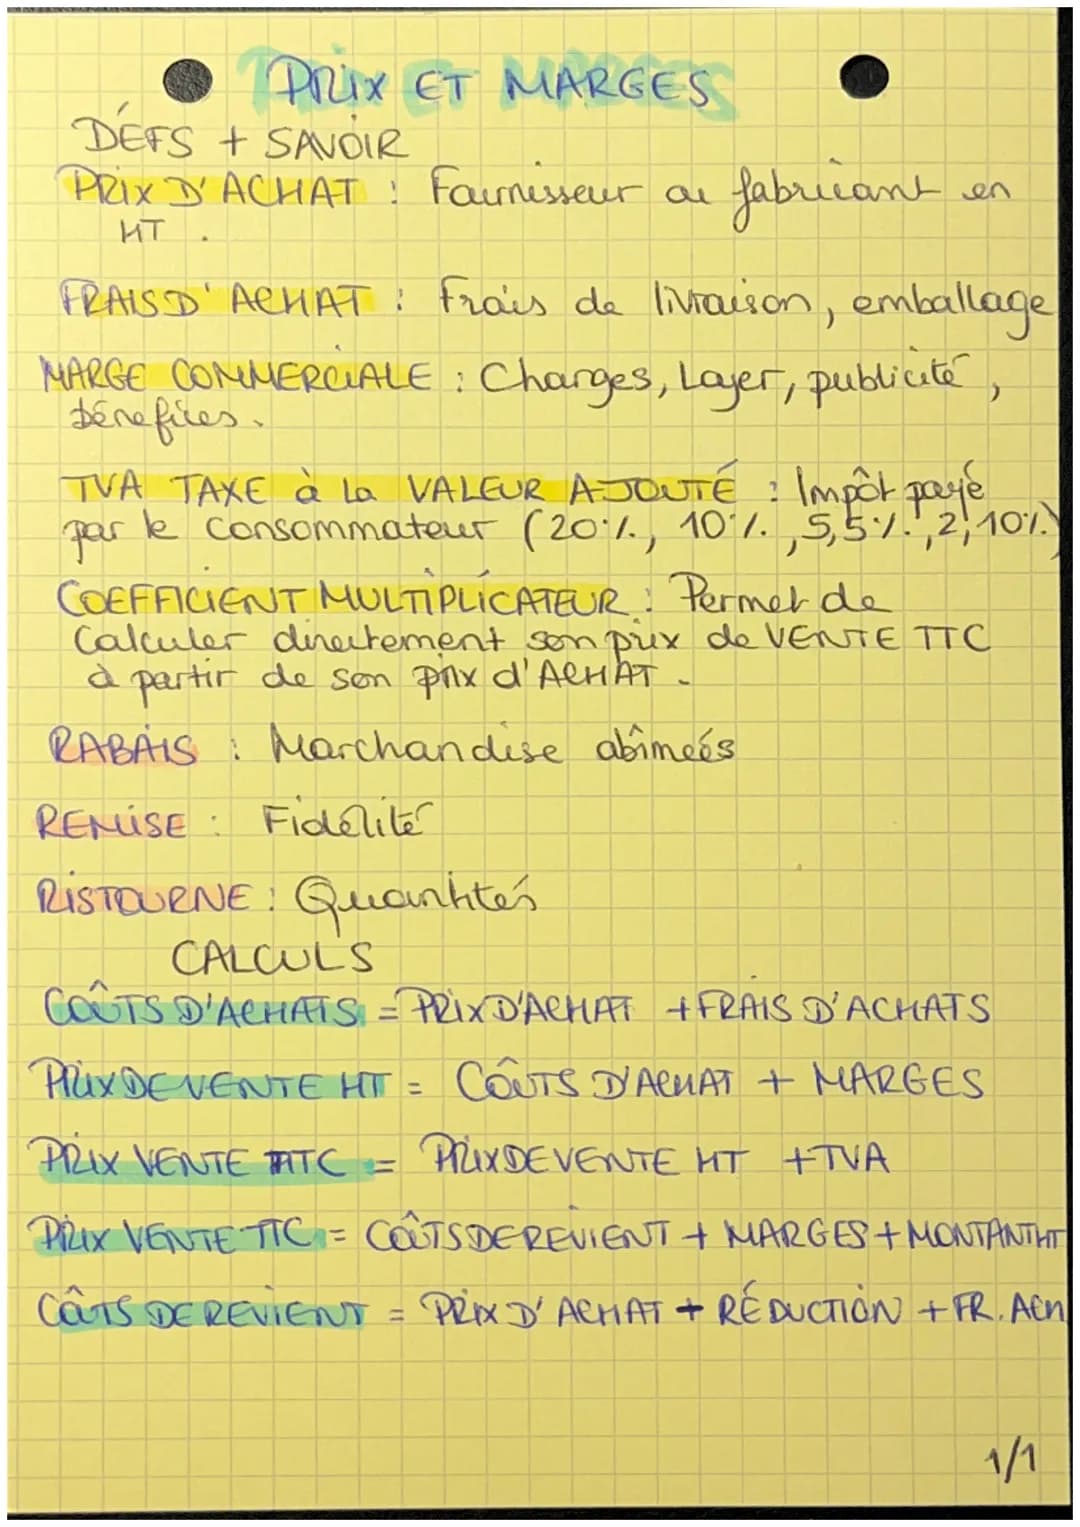 PRIX ET MARGES
DÉFS + SAVOIR
PRIX D'ACHAT : Fournisseur ou fabricant en
HT .
FRAIS D'ACHAT : Frais de livraison, emballage
MARGE COMMERCIALE : Charges, Loyer, publicité,
bénefices.
TVA TAXE à La VALEUR AJOUTÉ : Impôt payé
par le consommateur (20%, 10%, 5,5%, 2,10%)
COEFFICIENT MULTIPLICATEUR : Permet de
Calculer directement son prix de VENTE TTC
à partir de son prix d'ACHAT .
RABAIS : Marchandise abîmeés
REMISE : Fidélité
RISTOURNE : Quantités
CALCULS
COÛTS D'ACHATS = PRIX D'ACHAT + FRAIS D'ACHATS
PRIX DE VENTE HT = COÛTS D'ACHAT + MARGES
PRIX VENTE TTC = PRIX DE VENTE HT + TVA
PRIX VENTE TTC = COÛTS DE REVIENT + MARGES + MONTANT HT
COÛTS DE REVIENT = PRIX D'ACHAT + RÉDUCTION + FR. ACH
1/1